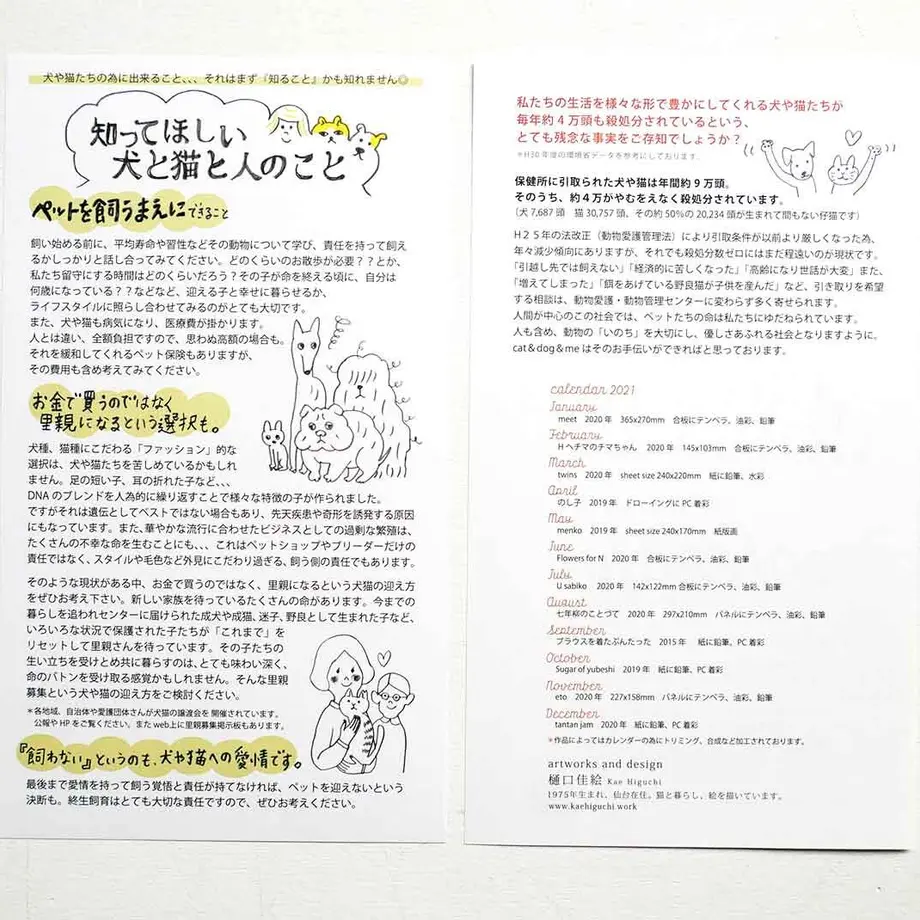 犬や猫たちの為に出来ること、、、それはまず『知ること』かも知れません
知ってほしい
犬と猫と人のこと
ペットを飼うまえにできること
飼い始める前に、平均寿命や習性などその動物について学び、責任を持って飼え
るかしっかりと話し合ってみてください。どのくらいのお散歩が必要？？とか、
私たち留守にする時間はどのくらいだろう？その子が命を終える頃に、自分は
何歳になっている？？などなど、迎える子と幸せに暮らせるか、
ライフスタイルに照らし合わせてみるのがとても大切です。
また、犬や猫も病気になり、医療費が掛かります。
人とは違い、全額負担ですので、思わぬ高額の場合も。
それを緩和してくれるペット保険もありますが、
その費用も含め考えてみてください。
お金で買うのではなく
里親になるという選択も。
犬種、猫種にこだわる「ファッション」的な
選択は、犬や猫たちを苦しめているかもしれ
ません。足の短い子、耳の折れた子など、、、
DNAのブレンドを人為的に繰り返すことで様々な特徴の子が作られました。
ですがそれは遺伝としてベストではない場合もあり、先天疾患や奇形を誘発する原因
にもなっています。また、華やかな流行に合わせたビジネスとしての過剰な繁殖は、
たくさんの不幸な命を生むことにも、、、これはペットショップやブリーダーだけの
責任ではなく、スタイルや毛色など外見にこだわり過ぎる、飼う側の責任でもあります。
そのような現状がある中、お金で買うのではなく、里親になるという犬猫の迎え方
をぜひお考え下さい。新しい家族を待っているたくさんの命があります。今までの
暮らしを追われセンターに届けられた成犬や成猫、迷子、野良として生まれた子など、
いろいろな状況で保護された子たちが「これまで」を
リセットして里親さんを待っています。その子たちの
生い立ちを受けとめ共に暮らすのは、とても味わい深く、
命のバトンを受け取る感覚かもしれません。そんな里親
募集という犬や猫の迎え方をご検討ください。
＊各地域、自治体や愛護団体さんが犬猫の譲渡会を開催されています。
公報やHPをご覧ください。またweb上に里親募集掲示板もあります。
『飼わない』というのも、犬や猫への愛情です。
最後まで愛情を持って飼う覚悟と責任が持てなければ、ペットを迎えないという
決断も。終生飼育はとても大切な責任ですので、ぜひお考えください。
私たちの生活を様々な形で豊かにしてくれる犬や猫たちが
毎年約４万頭も殺処分されているという、
とても残念な事実をご存知でしょうか？
＊H30年度の環境省データを参考にしております。
保健所に引取られた犬や猫は年間約９万頭。
そのうち、約４万がやむをえなく殺処分されています。
（犬7,687頭　猫30,757頭、その約50%の20,234頭が生まれて間もない仔猫です）
H２５年の法改正（動物愛護管理法）により引取条件が以前より厳しくなった為、
年々減少傾向にありますが、それでも殺処分数ゼロにはまだ程遠いのが現状です。
「引越し先では飼えない」「経済的に苦しくなった」「高齢になり世話が大変」また、
「増えてしまった」「餌をあげている野良猫が子供を産んだ」など、引き取りを希望
する相談は、動物愛護・動物管理センターに変わらず多く寄せられます。
人間が中心のこの社会では、ペットたちの命は私たちにゆだねられています。
人も含め、動物の「いのち」を大切にし、優しさあふれる社会となりますように。
cat＆dog＆meはそのお手伝いができればと思っております。
calendar 2021
January
meet　2020年　365x270mm　合板にテンペラ、油彩、鉛筆
February
Hヘチマのチマちゃん　2020年　145x103mm　合板にテンペラ、油彩、鉛筆
March
twins　2020年　sheet size 240x220mm　紙に鉛筆、水彩
April
のし子　2019年　ドローイングにPC着彩
May
menko　2019年　sheet size 240x170mm　紙版画
June
Flowers for N　2020年　合板にテンペラ、油彩、鉛筆
July
U sabiko　2020年　142x122mm 合板にテンペラ、油彩、鉛筆
August
七年柳のことづて　2020年　297x210mm　パネルにテンペラ、油彩、鉛筆
September
ブラウスを着たぶんたった　2015年　紙に鉛筆、PC着彩
October
Sugar of yubeshi　2019年　紙に鉛筆、PC着彩
November
eto　2020年　227x158mm　パネルにテンペラ、油彩、鉛筆
December
tantan jam　2020年　紙に鉛筆、PC着彩
＊作品によってはカレンダーの為にトリミング、合成など加工されております。
artworks and design
樋口佳絵 Kae Higuchi
1975年生まれ、仙台在住。猫と暮らし、絵を描いています。
www.kaehiguchi.work